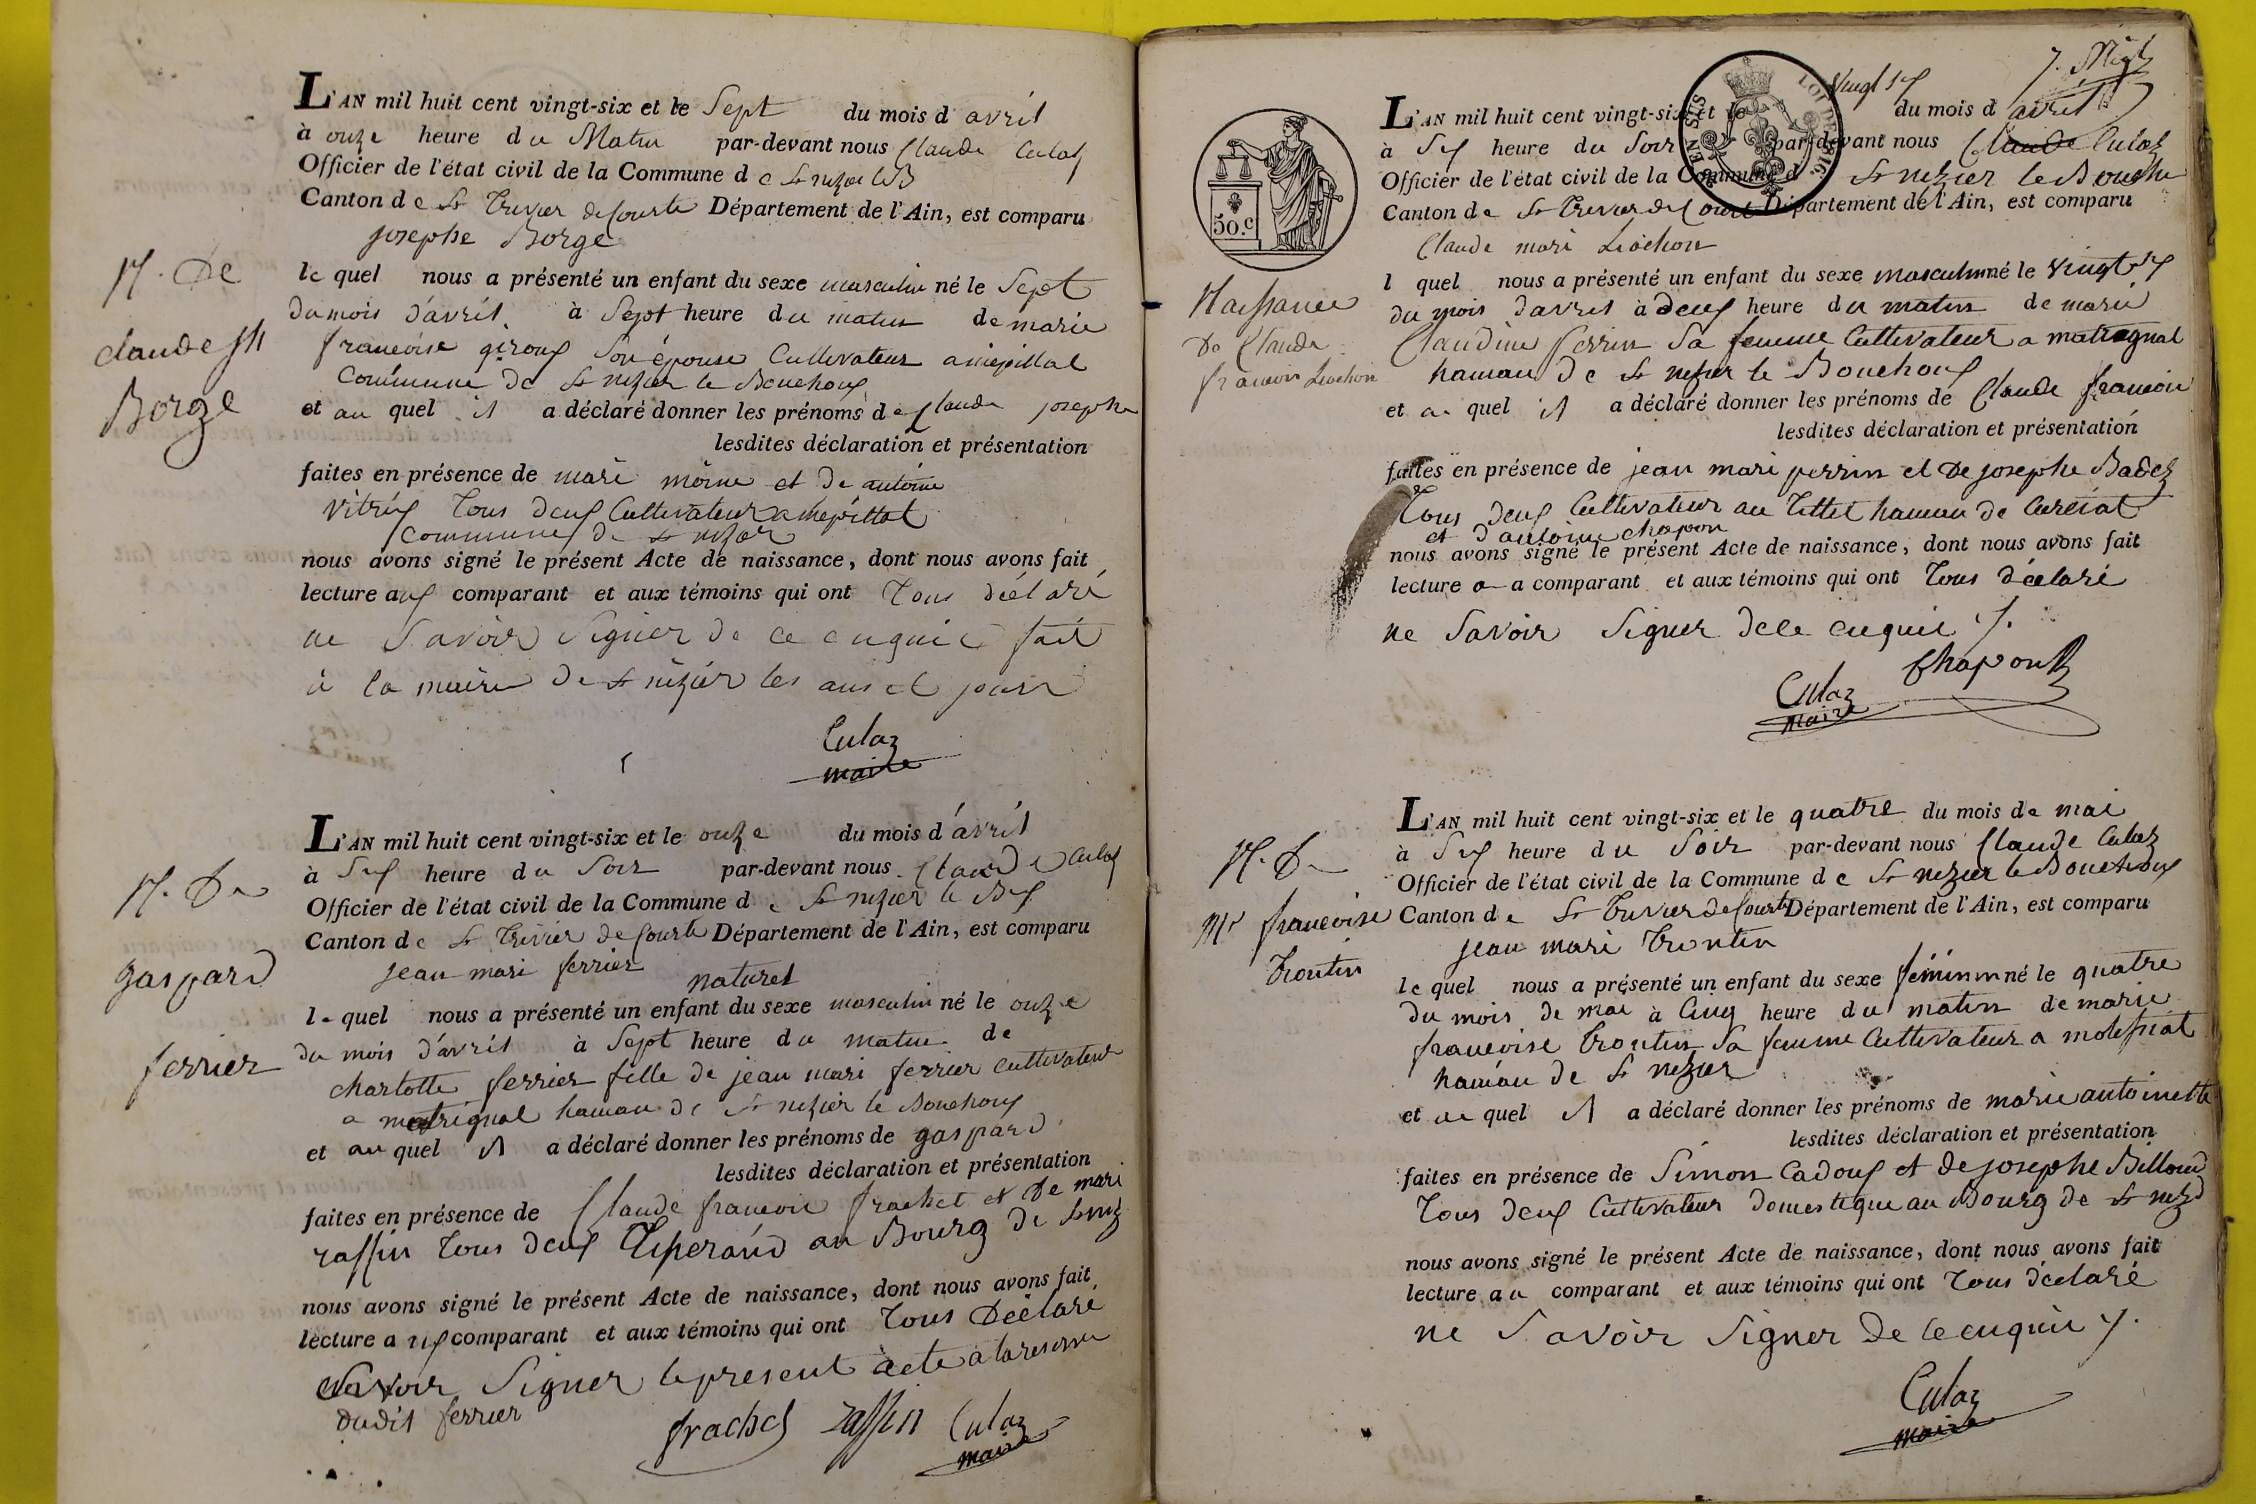 L'AN mil huit cent vingt-six et le Sept du mois d avril
à onze heure du Matin par-devant nous Claude Culaz
Officier de l'état civil de la Commune d e St nizier
Canton d e St Trivier de Courte Département de l'Ain, est comparu
josephe Borge
le quel nous a présenté un enfant du sexe masculin né le Sept
du mois d'avril à Sept heure du matin de marie
francoise giroux Son épouse Cultivateur
Commune de St nizier le Bouchoux
et au quel il a déclaré donner les prénoms de Claude josephe
lesdites déclaration et présentation
faites en présence de mari moine et de antoine
Vitrix Tous deux Cultivateur
Commune de St nizier
nous avons signé le présent Acte de naissance, dont nous avons fait
lecture aux comparant et aux témoins qui ont Tous déclaré
ne Savoir Signer de ce enquit fait
à la mairie de St nizier les ans et jours
Culaz
maire
N. De
claude jh
Borge
L'AN mil huit cent vingt-six et le onze du mois d'avril
à Six heure du Soir par-devant nous Claude Culaz
Officier de l'état civil de la Commune d e St nizier le Bx
Canton de St Trivier de Courte Département de l'Ain, est comparu
jean mari ferrier
naturel
le quel nous a présenté un enfant du sexe masculin né le onze
du mois d'avril à Sept heure du matin de
charlotte ferrier fille de jean mari ferrier cultivateur
a matrignat hamau de St nizier le Bouchoux
et au quel il a déclaré donner les prénoms de gaspard
lesdites déclaration et présentation
faites en présence de Claude francois frachet et De mari
raffin Tous deux au Bourg de St niz
nous avons signé le présent Acte de naissance, dont nous avons fait
lecture a ux comparant et aux témoins qui ont Tous Déclaré
Savoir Signer le present acte a la reserve
dudit ferrier
frachet raffin Culaz
maire
N. De
gaspard
ferrier
7. Mig
L'AN mil huit cent vingt-six et le Vingt Six du mois d avril
à Six heure du Soir par-devant nous Claude Culaz
Officier de l'état civil de la Commune d St nizier le Bouchx
Canton de St Trivier de Courte Département de l'Ain, est comparu
Claude mari Liochon
l quel nous a présenté un enfant du sexe masculin né le Vingt Six
du mois davril à deux heure du matin de marie
Claudine perrin Sa femme Cultivateur a matrognat
hamau De St nizier le Bouchoux
et au quel il a déclaré donner les prénoms de Claude francois
lesdites déclaration et présentation
faites en présence de jean mari perrin et De josephe Badez
Tous deux Cultivateur au Tillet hamau de Curciat
et d'antoine chapon
nous avons signé le présent Acte de naissance, dont nous avons fait
lecture au comparant et aux témoins qui ont Tous déclaré
ne Savoir Signer dece enquit /.
Chapon
Culaz
maire
50.c
EN SUS
LOI DE 1816.
Naissance
De Claude
francois Liochon
L'AN mil huit cent vingt-six et le quatre du mois de mai
à Six heure du Soir par-devant nous Claude Culaz
Officier de l'état civil de la Commune d e St nizier le Bouchoux
Canton de St Trivier de Courte Département de l'Ain, est comparu
jean mari Trontin
le quel nous a présenté un enfant du sexe féminin né le quatre
du mois de mai à Cinq heure du matin de marie
francoise Trontin Sa femme Cultivateur a molissiat
hamau de St nizier
et au quel il a déclaré donner les prénoms de marie antoinette
lesdites déclaration et présentation
faites en présence de Simon Cadoux et de josephe Billoud
Tous deux Cultivateur domestique au Bourg de St nizi
nous avons signé le présent Acte de naissance, dont nous avons fait
lecture au comparant et aux témoins qui ont Tous déclaré
ne Savoir Signer De ce enquit /.
Culaz
maire
N. De
Me francoise
Trontin